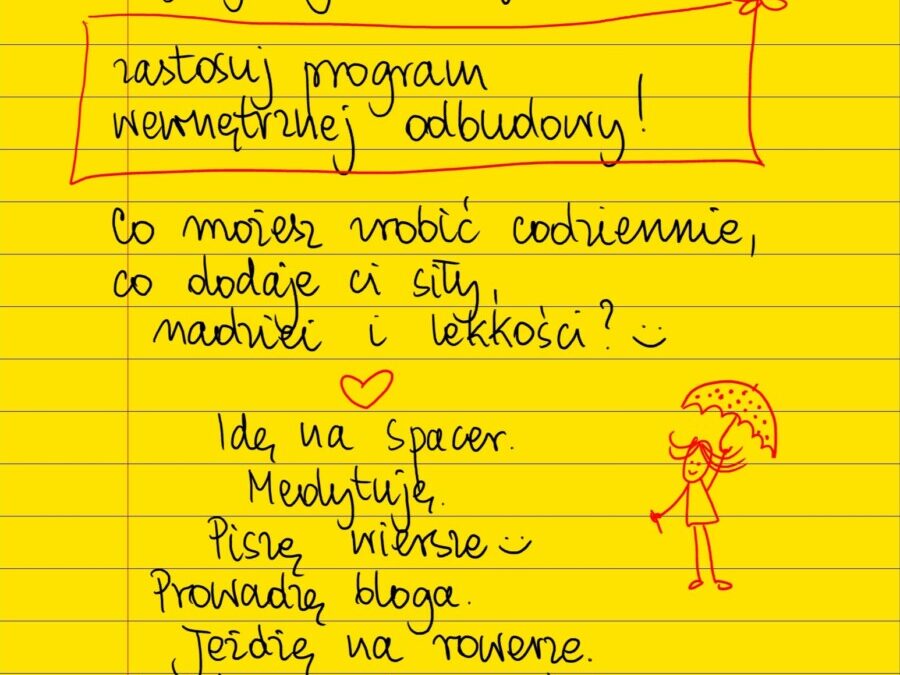 zastosuj program
wewnętrznej odbudowy!
Co możesz zrobić codziennie,
co dodaje ci siły,
nadziei i lekkości?
Idę na spacer.
Medytuję.
Piszę wiersze
Prowadzę bloga.
Jeżdżę na rowerze.